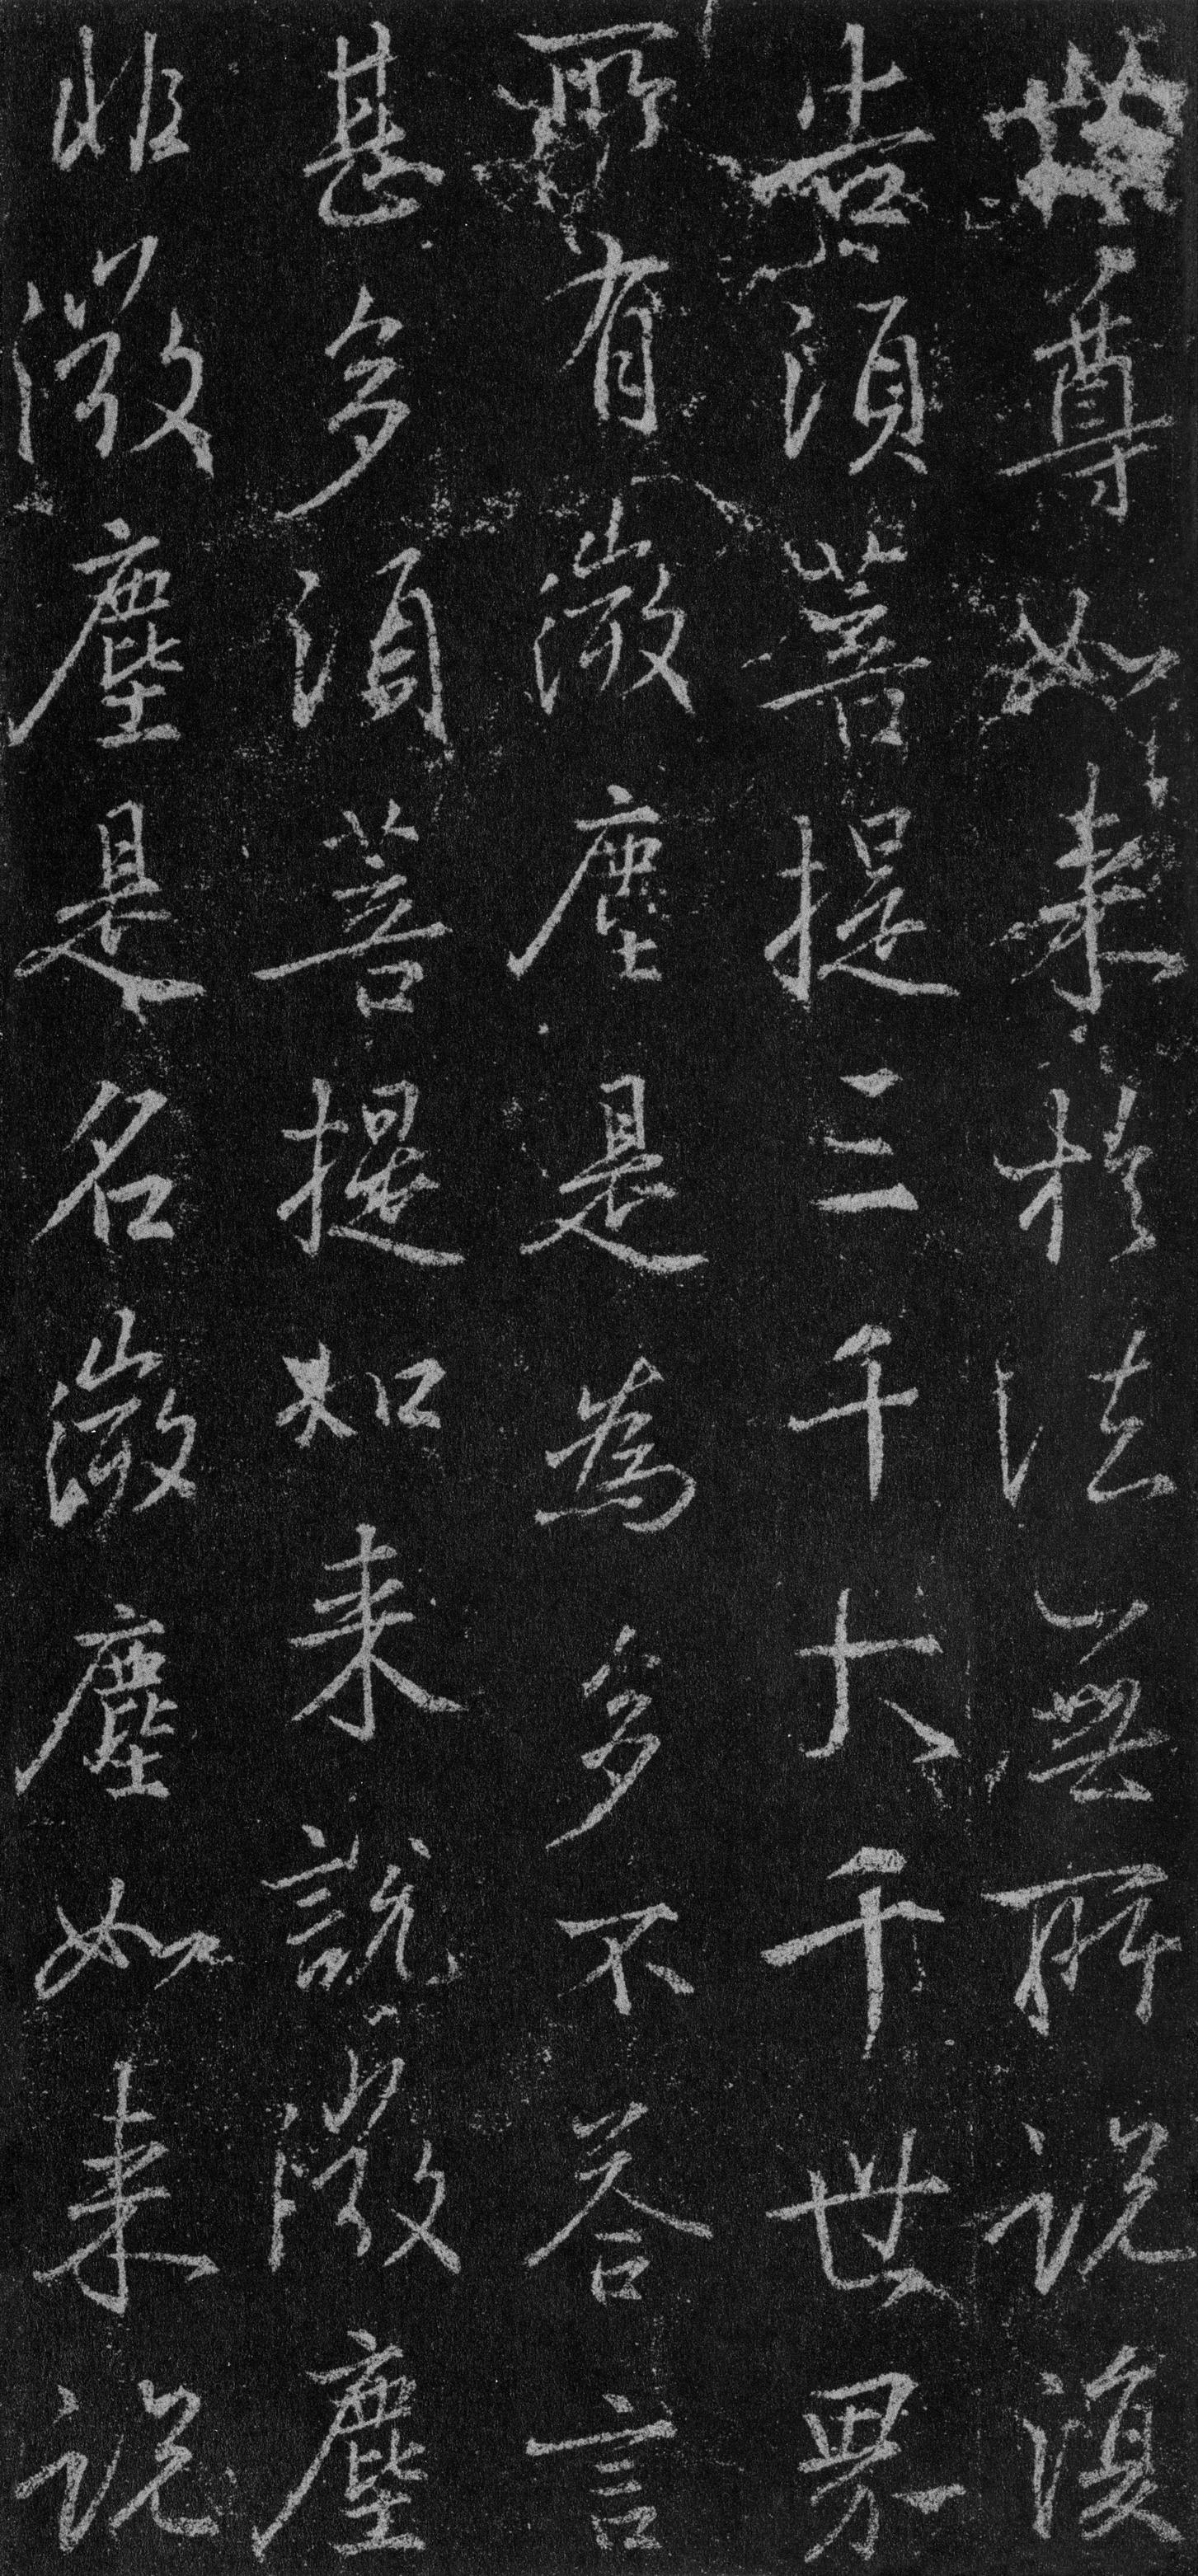 世尊如来於法無所說復
告須菩提三千大千世界
所有微塵是為多不荅言
甚多須菩提如来說微塵
非微塵是名微塵如来說